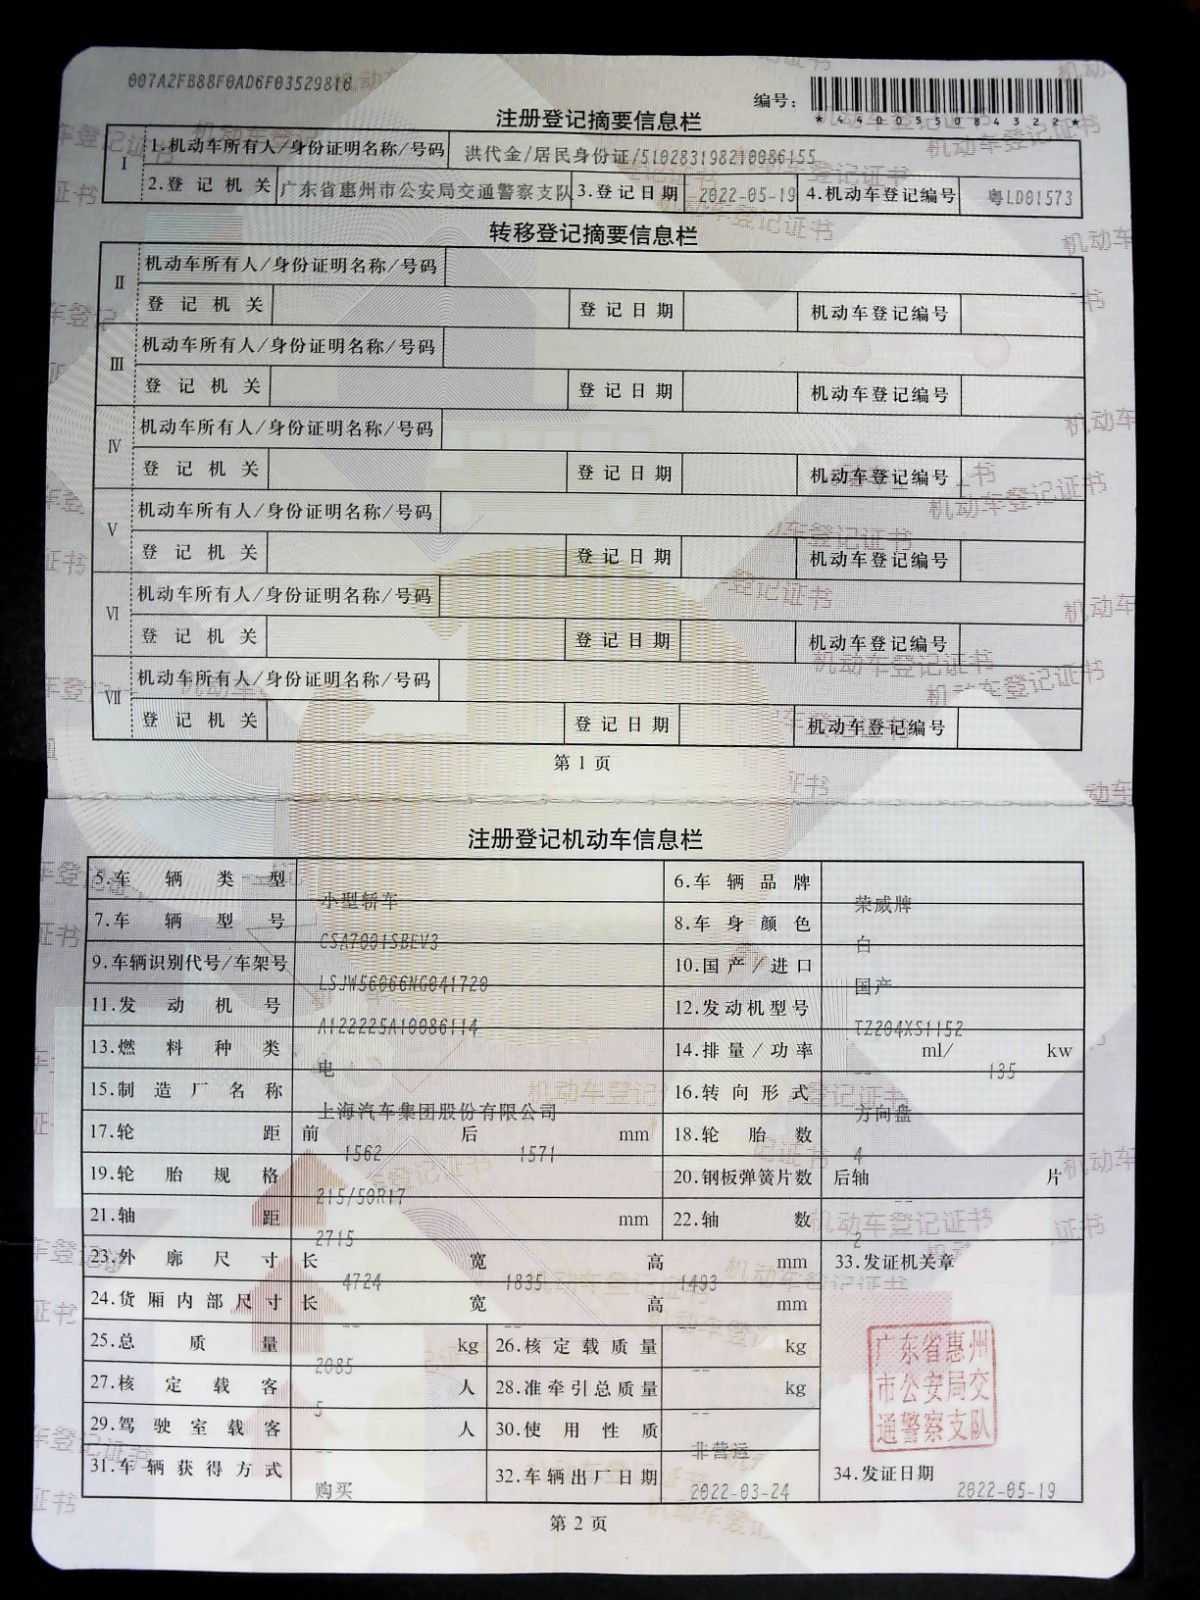 007A2FB88F0AD6F03529816
编号：
*440055084322*
注册登记摘要信息栏
I
1.机动车所有人/身份证明名称/号码 洪代金/居民身份证/510283198210086155
2.登记机关 广东省惠州市公安局交通警察支队 3.登记日期 2022-05-19 4.机动车登记编号 粤LD01573
转移登记摘要信息栏
II
机动车所有人/身份证明名称/号码
登记机关 登记日期 机动车登记编号
III
机动车所有人/身份证明名称/号码
登记机关 登记日期 机动车登记编号
IV
机动车所有人/身份证明名称/号码
登记机关 登记日期 机动车登记编号
V
机动车所有人/身份证明名称/号码
登记机关 登记日期 机动车登记编号
VI
机动车所有人/身份证明名称/号码
登记机关 登记日期 机动车登记编号
VII
机动车所有人/身份证明名称/号码
登记机关 登记日期 机动车登记编号
第1页
注册登记机动车信息栏
5.车辆类型 小型轿车 6.车辆品牌 荣威牌
7.车辆型号 CSA7001SBEV3 8.车身颜色 白
9.车辆识别代号/车架号 LSJW56066NG041720 10.国产/进口 国产
11.发动机号 A122225A10086114 12.发动机型号 TZ204XS1152
13.燃料种类 电 14.排量/功率 -- ml/ 135 kw
15.制造厂名称 上海汽车集团股份有限公司 16.转向形式 方向盘
17.轮距 前 1562 后 1571 mm 18.轮胎数 4
19.轮胎规格 215/50R17 20.钢板弹簧片数 后轴 -- 片
21.轴距 2715 mm 22.轴数 2
23.外廓尺寸 长 4724 宽 1835 高 1493 mm 33.发证机关章
24.货厢内部尺寸 长 -- 宽 -- 高 -- mm
25.总质量 2085 kg 26.核定载质量 -- kg
27.核定载客 5 人 28.准牵引总质量 -- kg
29.驾驶室载客 -- 人 30.使用性质 非营运
31.车辆获得方式 购买 32.车辆出厂日期 2022-03-24 34.发证日期 2022-05-19
广东省惠州
市公安局交
通警察支队
第2页